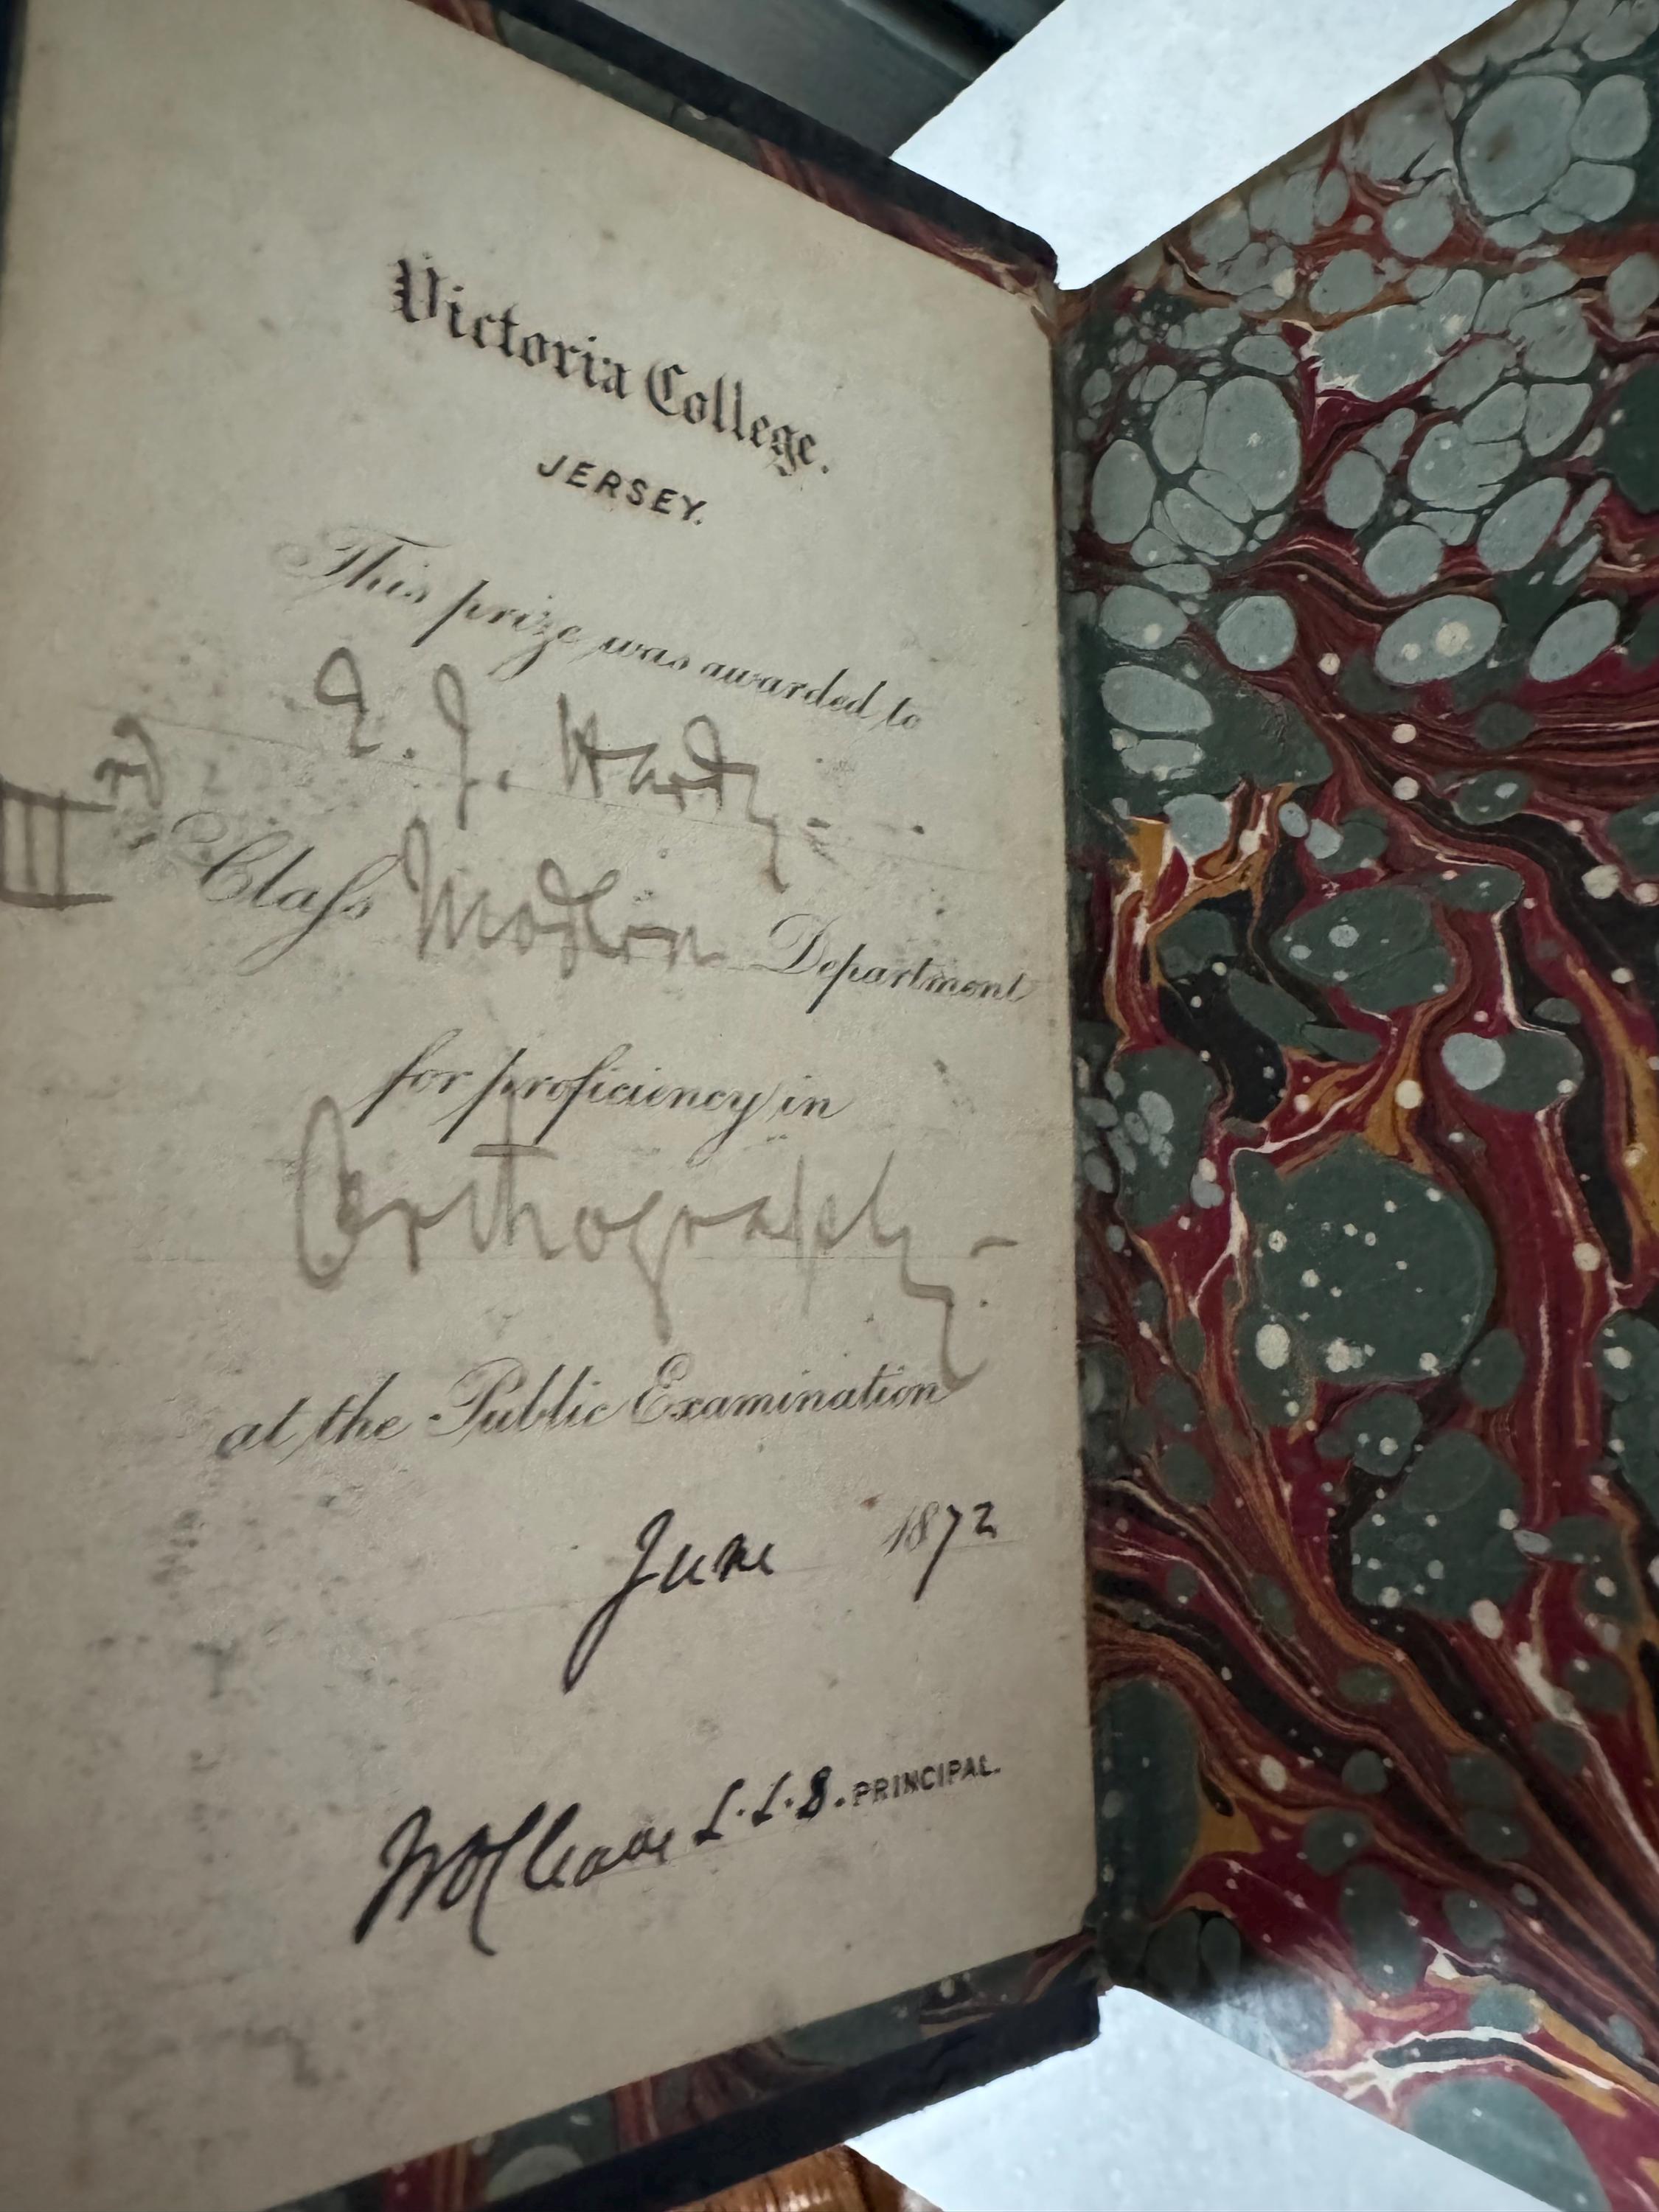 Victoria College.
JERSEY.
This prize was awarded to
E. J. Hardy.
IIIrd Class Modern Department
for proficiency in
Orthography -
at the Public Examination
June 1872
L.L.D. PRINCIPAL.